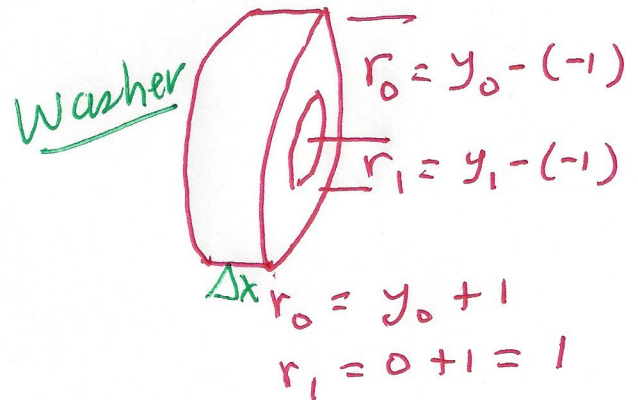 Washer
r₀ = y₀ - (-1)
r₁ = y₁ - (-1)
Δx
r₀ = y₀ + 1
r₁ = 0 + 1 = 1